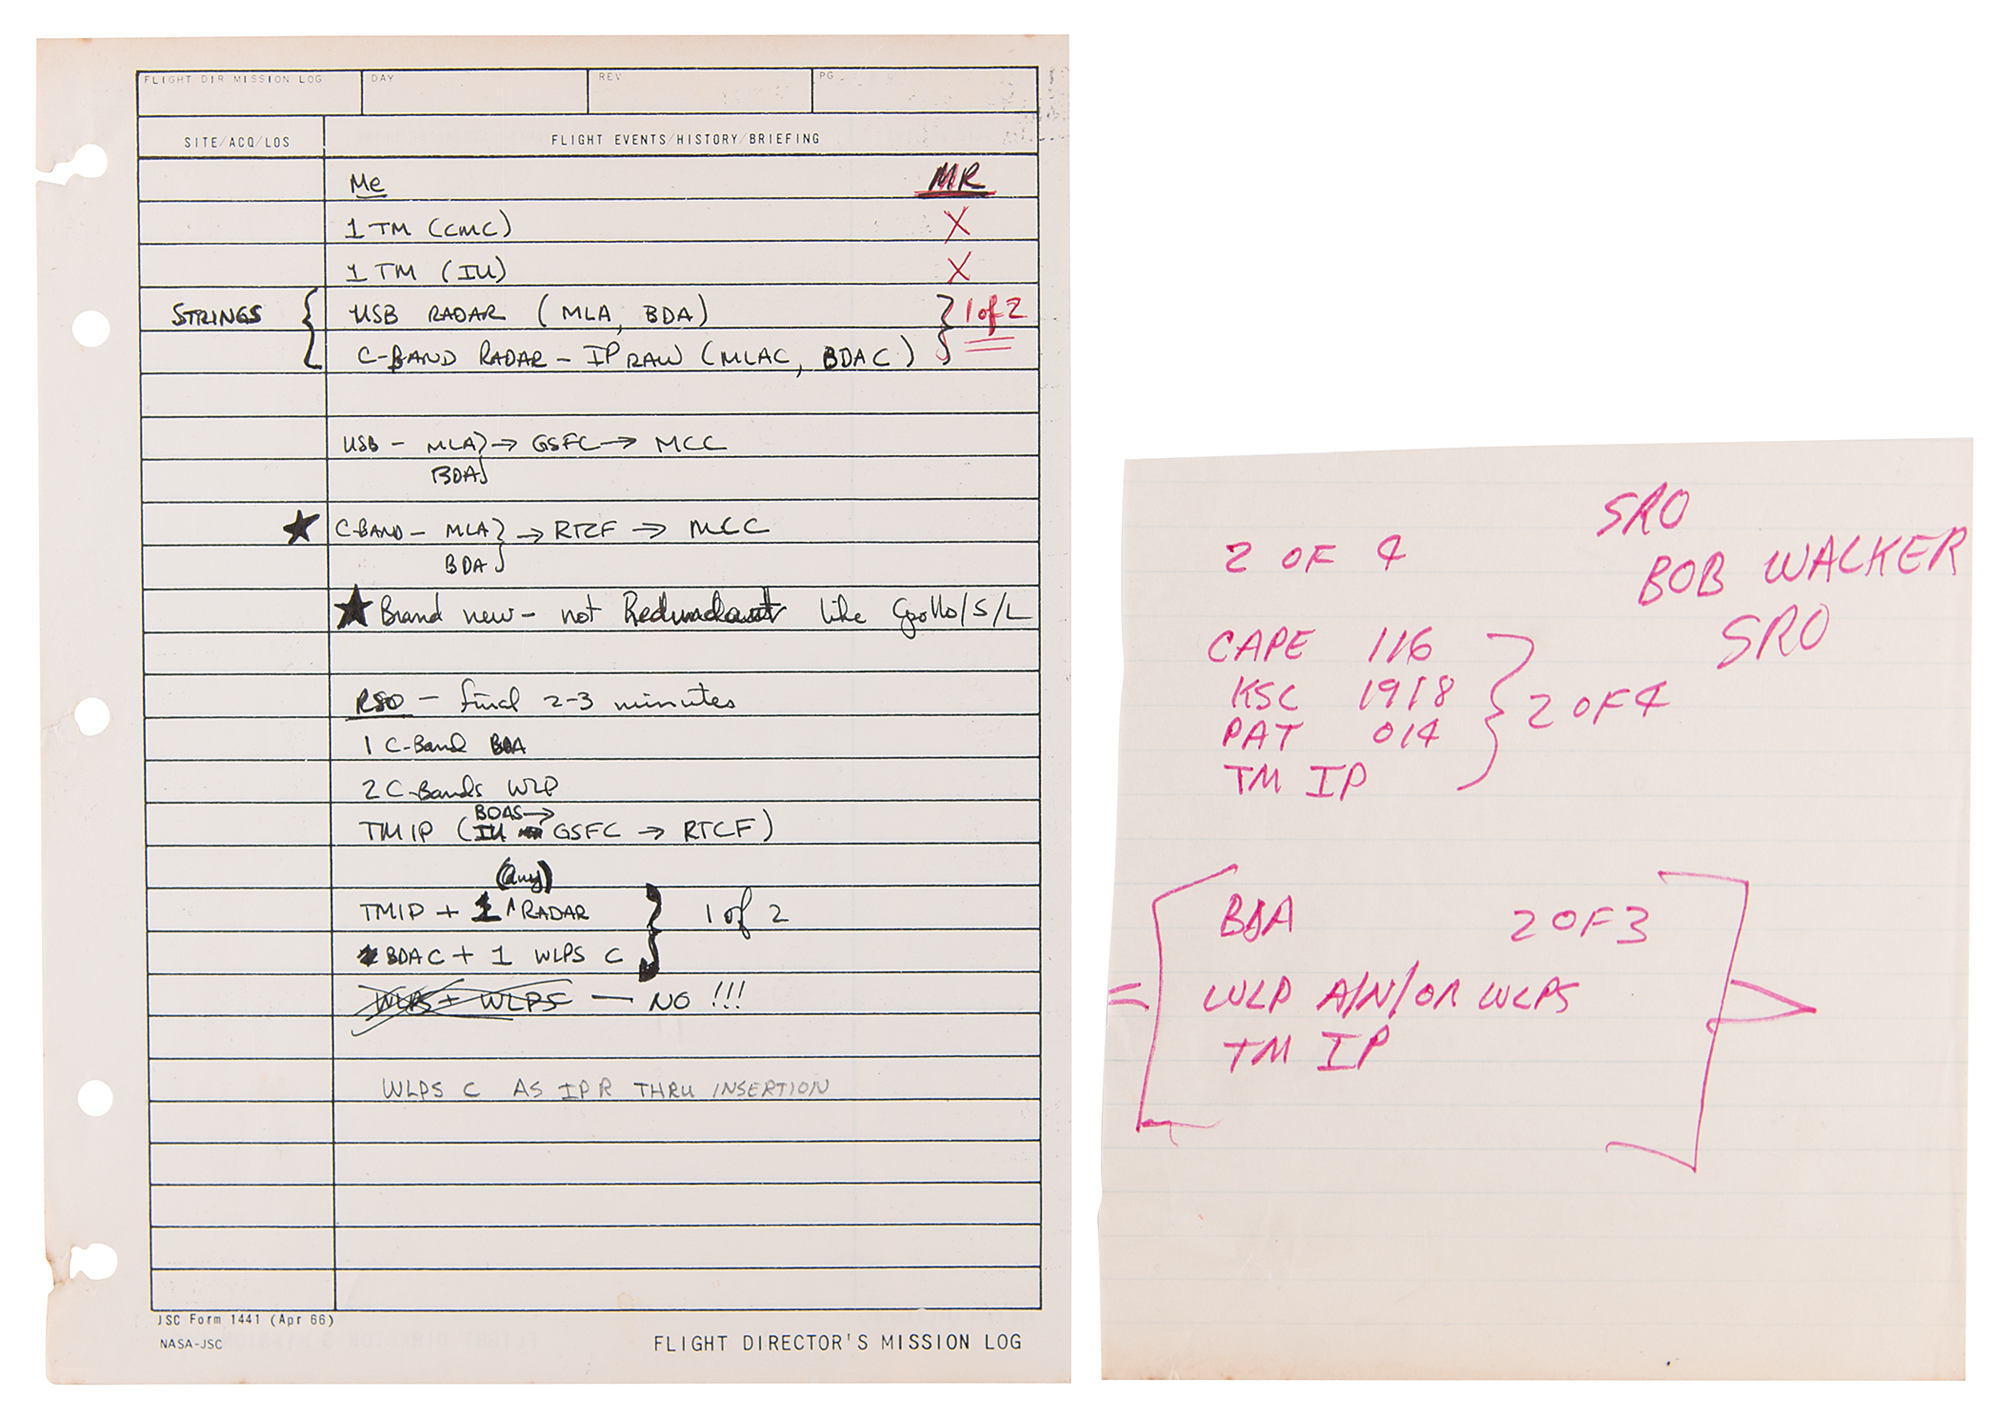 FLIGHT DIR MISSION LOG DAY REV PG
SITE/ACQ/LOS FLIGHT EVENTS/HISTORY/BRIEFING
Me MR
1 TM (CMC) X
1 TM (IU) X
STRINGS { USB RADAR (MLA, BDA) } 1 of 2
C-BAND RADAR - IP RAW (MLAC, BDAC)
USB - MLA } → GSFC → MCC
BDA
★ C-BAND - MLA } → RTCF → MCC
BDA
★ Brand new - not Redundant like Apollo/S/L
RSO - final 2-3 minutes
1 C-Band BDA
2 C-Bands WLP
BDAS →
TM IP (IU GSFC → RTCF)
(any)
TMIP + 1 ^ RADAR } 1 of 2
BDAC + 1 WLPS C
WLPS + WLPS — NO !!!
WLPS C AS IPR THRU INSERTION
JSC Form 1441 (Apr 66)
NASA-JSC FLIGHT DIRECTOR'S MISSION LOG
SRO
2 OF 4 BOB WALKER
SRO
CAPE 1/16
KSC 19/18 } 2 OF 4
PAT 0/4
TM IP
BDA 2 OF 3
= WLP A/N/OR WLPS
TM IP